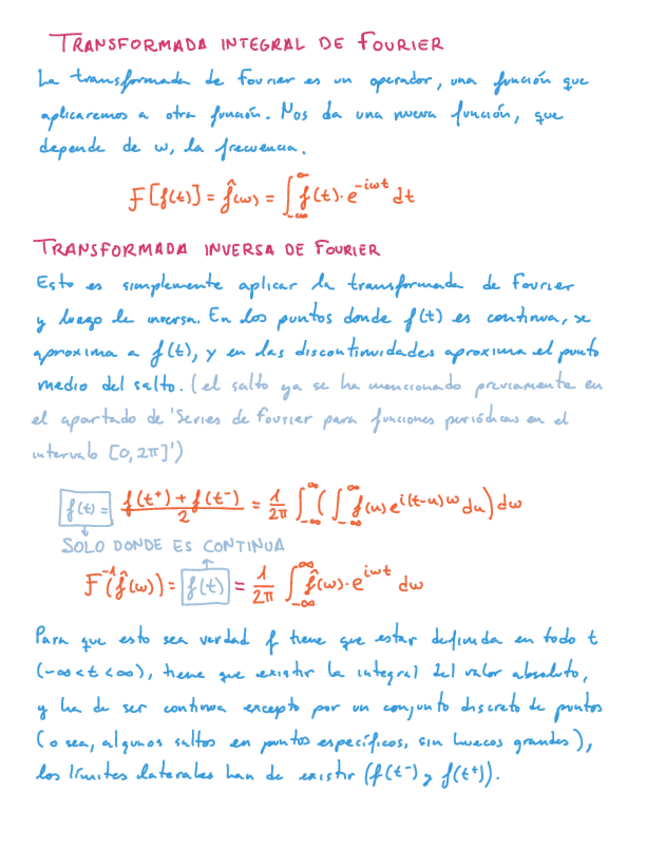 TRANSFORMADA INTEGRAL DE FOURIER
La transformada de Fourier es un operador, una función que
aplicaremos a otra función. Nos da una nueva función, que
depende de w, la frecuencia.
F[f(t)] = f̂(w) = ∫_{-∞}^{∞} f(t)·e^{-iwt} dt
TRANSFORMADA INVERSA DE FOURIER
Esto es simplemente aplicar la transformada de Fourier
y luego la inversa. En los puntos donde f(t) es continua, se
aproxima a f(t), y en las discontinuidades aproxima el punto
medio del salto. (el salto ya se ha mencionado previamente en
el apartado de 'Series de Fourier para funciones periódicas en el
intervalo [0,2π]')
f(t) = (f(t⁺) + f(t⁻))/2 = 1/2π ∫_{-∞}^{∞} (∫_{-∞}^{∞} f(u) e^{i(t-u)w} du) dw
SOLO DONDE ES CONTINUA
F⁻¹(f̂(w)) = f(t) = 1/2π ∫_{-∞}^{∞} f̂(w)·e^{iwt} dw
Para que esto sea verdad f tiene que estar definida en todo t
(-∞<t<∞), tiene que existir la integral del valor absoluto,
y ha de ser continua excepto por un conjunto discreto de puntos
(o sea, algunos saltos en puntos específicos, sin huecos grandes),
los límites laterales han de existir (f(t⁻) y f(t⁺)).